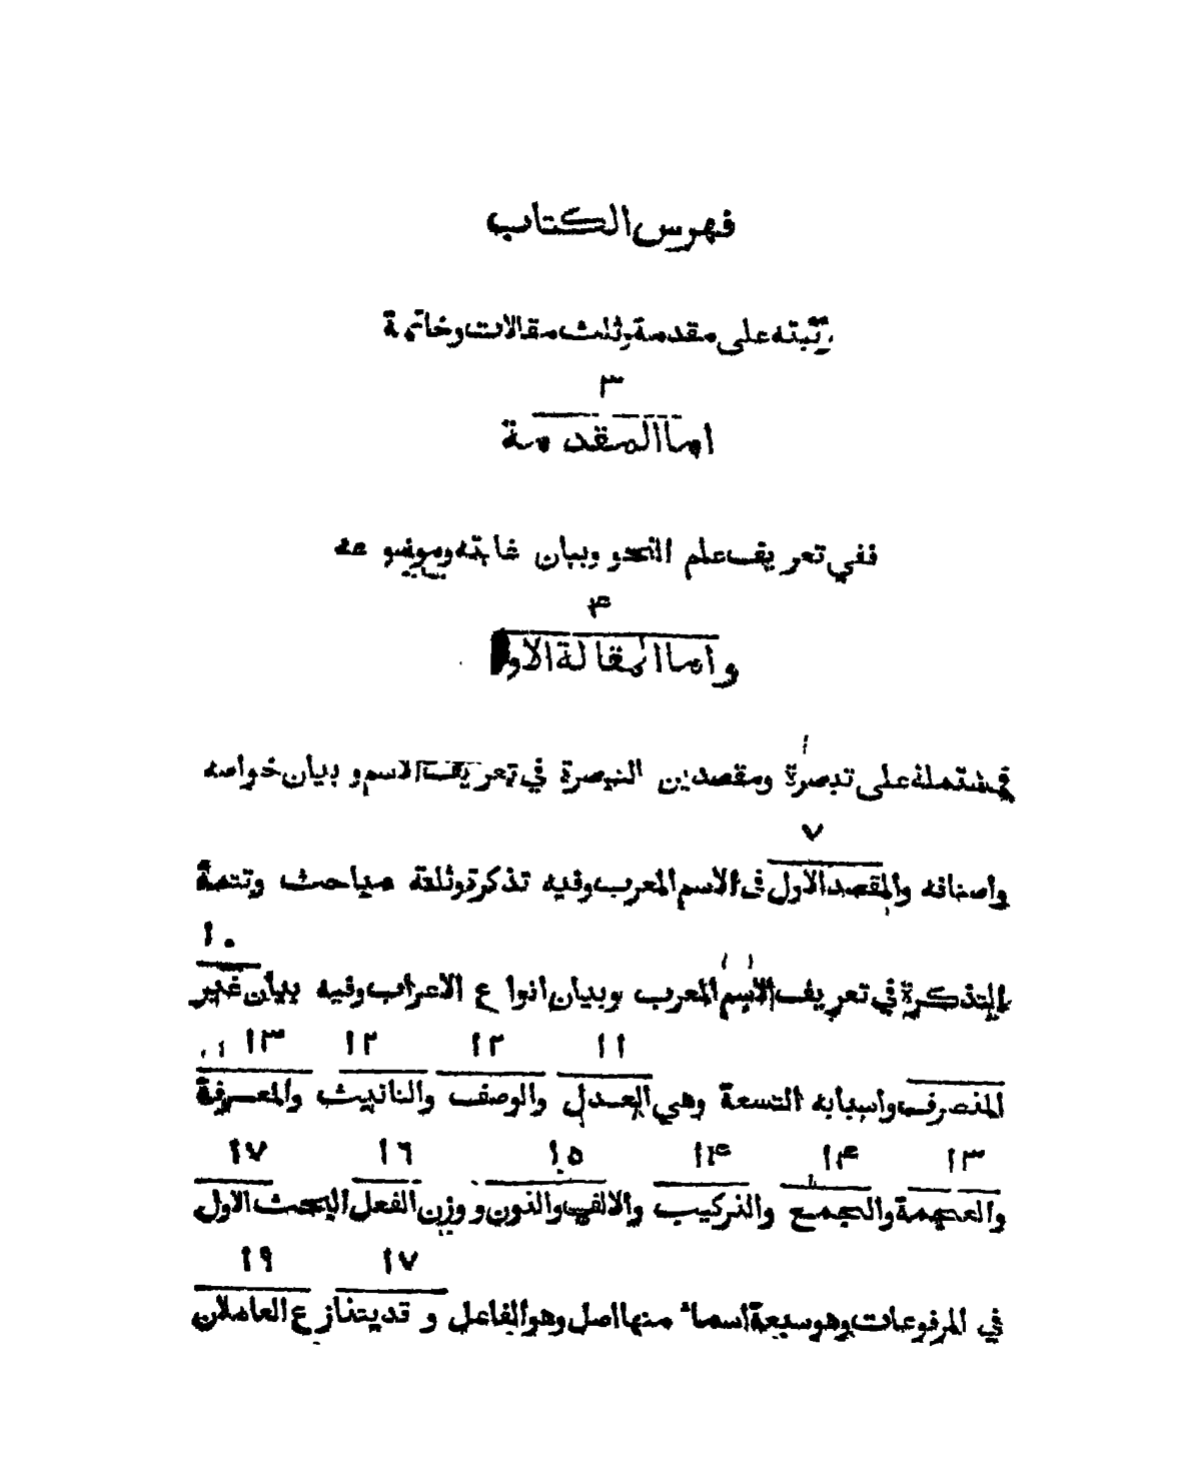 فهرس الكتاب
رتبته على مقدمة وثلث مقالات وخاتمة
٣
اما المقدمة
ففي تعريف علم النحو وبيان غايته وموضوعه
۴
واما المقالة الاو
فمشتملة على تبصرة ومقصدين التبصرة في تعريف الاسم وبيان خواصه
٧
واصنافه والمقصد الاول في الاسم المعرب وفيه تذكرة وثلثة مباحث وتتمة
١٠
التذكرة في تعريف الاسم المعرب وبيان انواع الاعراب وفيه بيان غير
١١ ١٢ ١٢ ١٣
المنصرف واسبابه التسعة وهي العدل والوصف والتانيث والمعرفة
١٣ ١۴ ١۴ ١٥ ١٦ ١٧
والعجمة والجمع والتركيب والالف والنون ووزن الفعل البحث الاول
١٧ ١٩
في المرفوعات وهو سبعة اسماء منها اصل وهو الفاعل و قد يتنازع العاملان